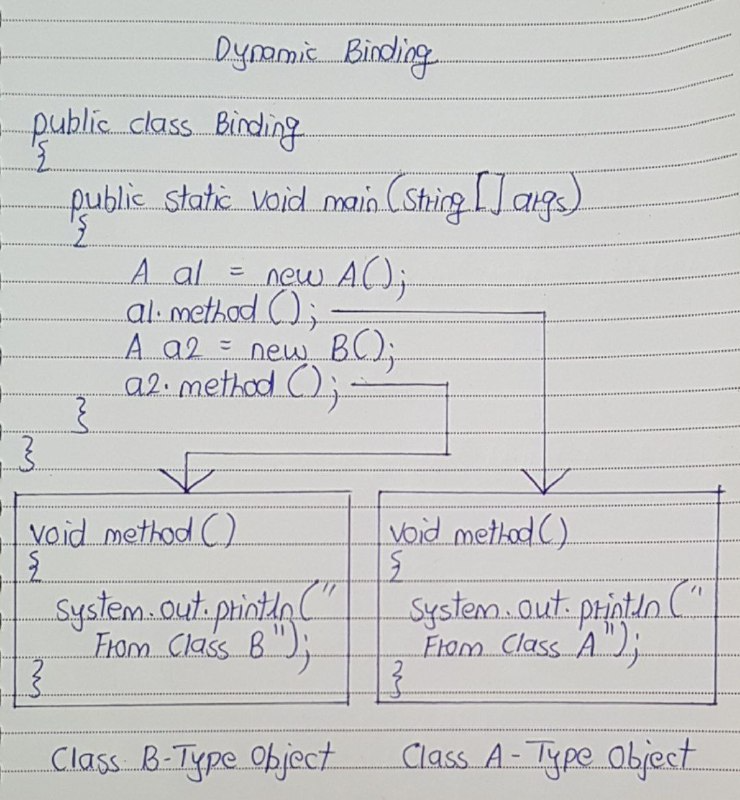 Dynamic Binding
public class Binding
{
public static void main(String[] args)
{
A a1 = new A();
a1.method();
A a2 = new B();
a2.method();
}
}
void method()
{
System.out.println("
From Class B");
}
Class B-Type Object
void method()
{
System.out.println("
From Class A");
}
Class A-Type Object